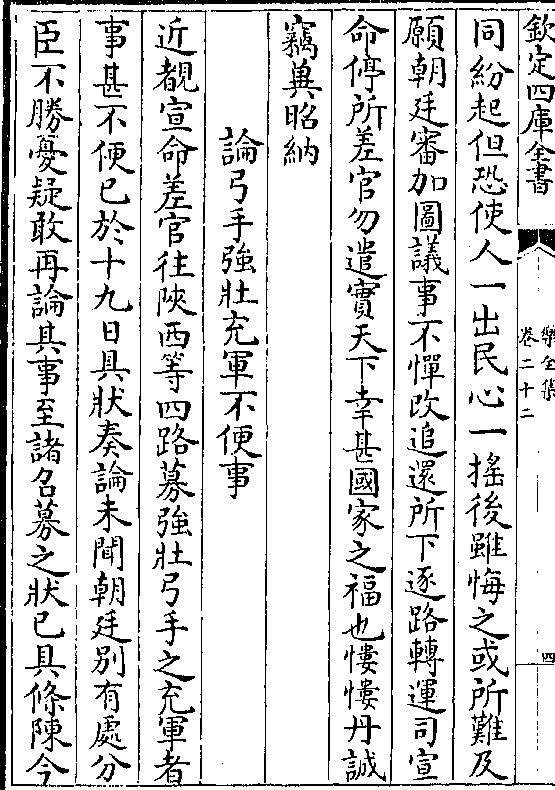 欽定四庫全書
樂全集
卷二十二
四
同紛起但恐使人一出民心一揺後雖悔之或所難及
願朝廷審加圖議事不憚改追還所下逐路轉運司宣
命停所差官勿遣實天下幸甚國家之福也慺慺丹誠
竊兾昭納
論弓手強壯充軍不便事
近覩宣命差官往陜西等四路募強壯弓手之充軍者
事甚不便已於十九日具狀奏論未聞朝廷别有處分
臣不勝憂疑敢再論其事至諸名募之狀已具條陳今